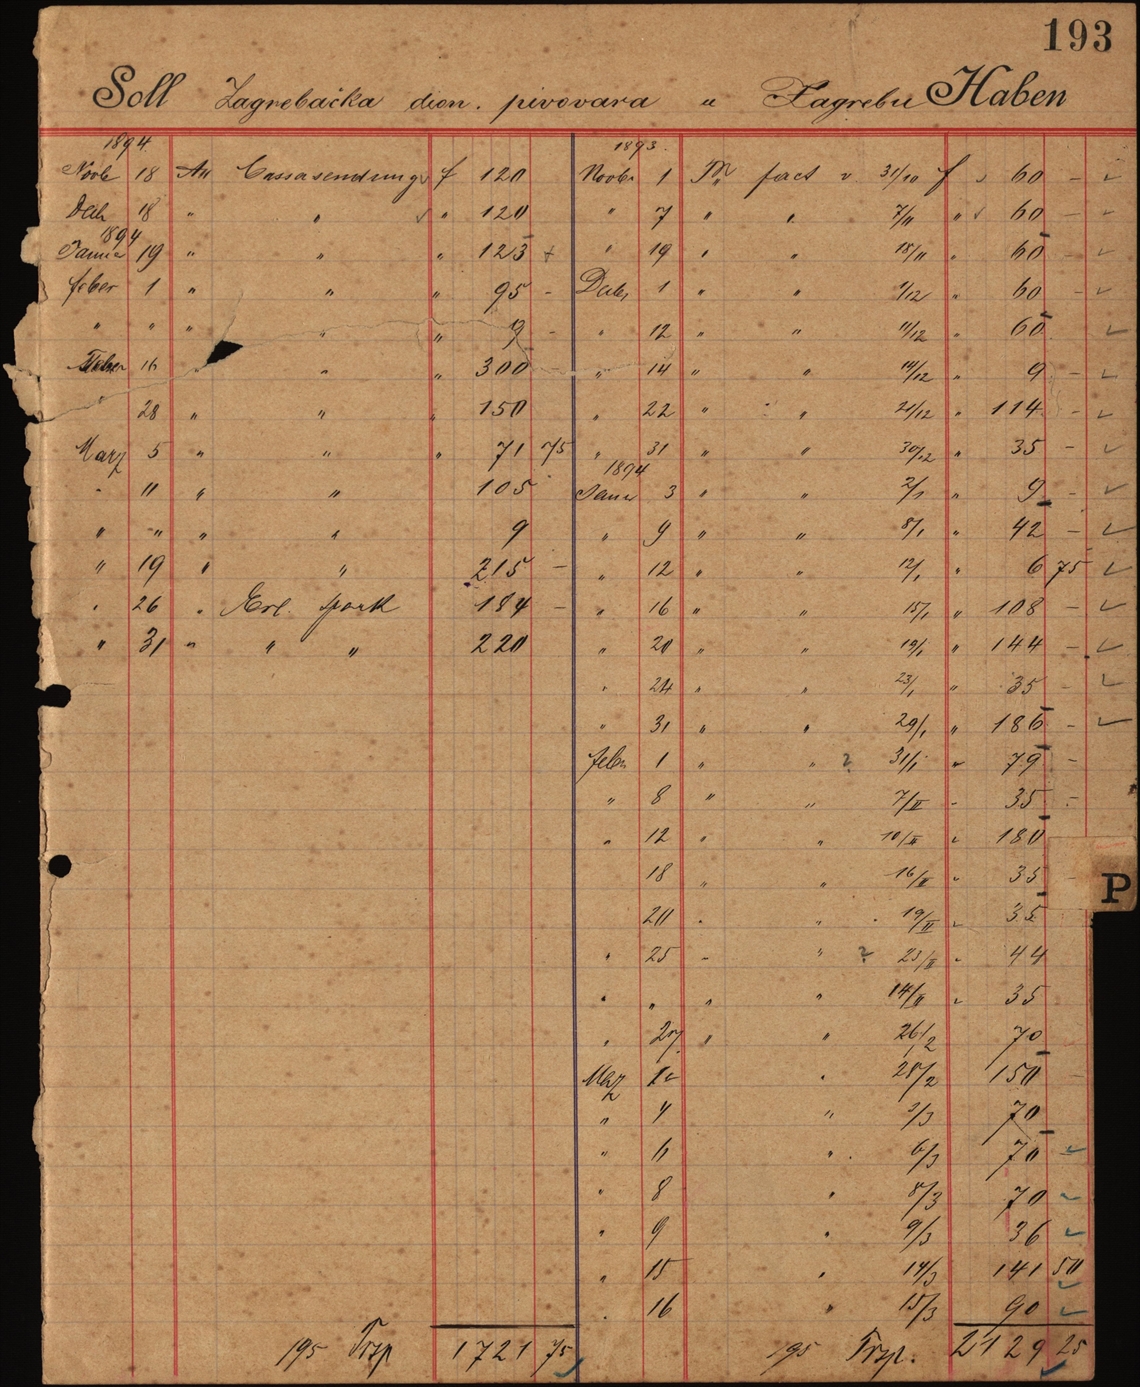 193
Soll Zagrebačka dion. pivovara u Zagrebu Haben
1894 1893.
Novb 18 An Cassasendung f 120 Novbr 1 Pr fact v. 31/10 f 60 –
Deb 18 " " " 120 " 7 " " 7/11 " 60 –
1894
Januar 19 " " " 123 " 19 " " 18/11 " 60 –
feber 1 " " " 95 – Debr 1 " " 1/12 " 60 –
" " " " " 9 – " 12 " " 11/12 " 60
Feber 16 " " " 300 " 14 " " 14/12 " 9 –
28 " " " 150 " 22 " " 21/12 " 114 –
Marz 5 " " " 71 75 " 31 " " 30/12 " 35 –
1894
" 11 " " 105 Januar 3 " " 2/1 " 9 –
" " " " 9 " 9 " " 8/1 " 42 –
" 19 " " 215 – " 12 " " 12/1 " 6 75
" 26 " Erl. Spark 184 – " 16 " " 15/1 " 108 –
" 31 " " " 220 " 20 " " 19/1 " 144 –
" 24 " " 23/1 " 35 –
" 31 " " 29/1 " 186 –
feber 1 " " ? 31/1 " 79 –
" 8 " " 7/II " 35 –
" 12 " " 10/II " 180
18 " " 16/II " 35
P
20 " " 19/II " 35
" 25 " " ? 23/II " 44
" " " " 14/II " 35
" 27 " " 26/2 70
Marz " 28/2 150
" 4 " 3/3 70
" 6 " 6/3 70
" 8 " 8/3 70
" 9 " 9/3 36
" 15 " 14/3 141 50
" 16 " 15/3 90
195 Trsp 1721 75 195 Trsp. 2129 25